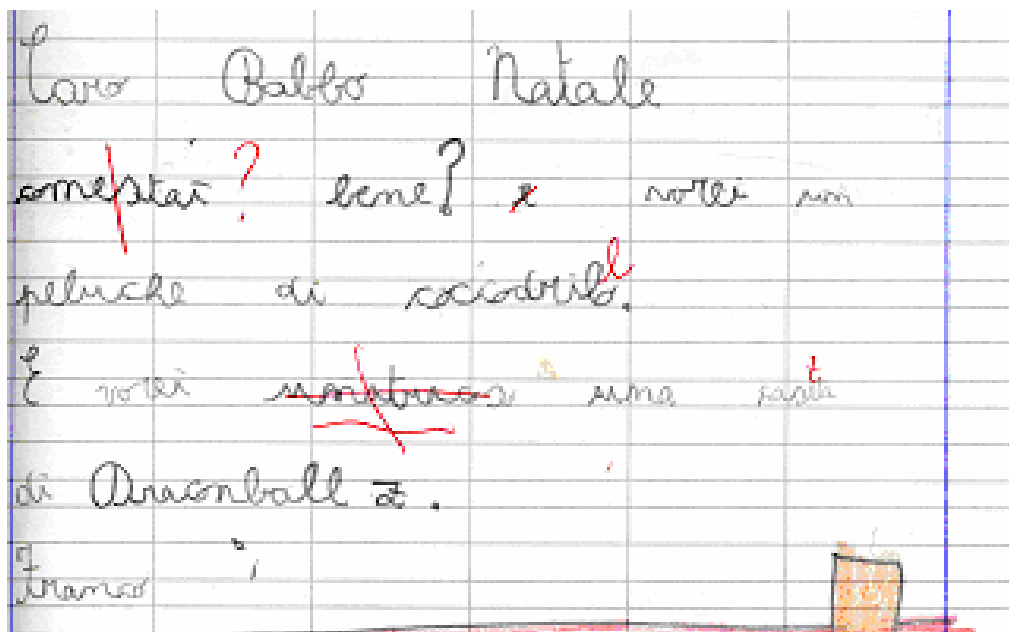 Caro Babbo Natale
come stai? bene? e vorei un
peluche di coccodrillo.
E vorei una carta
di Draconball Z.
Franco